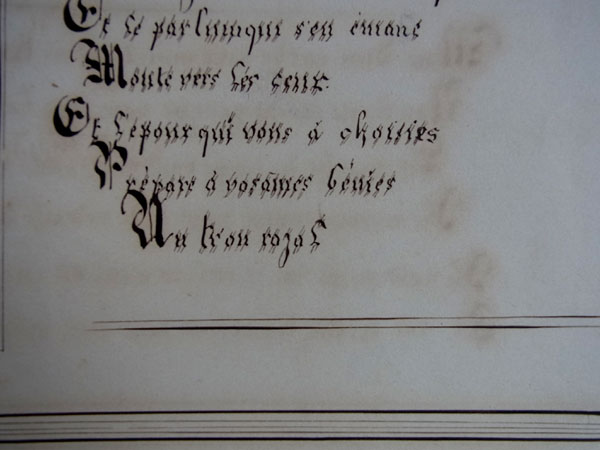 Et le parfum qui s'en émane
Monte vers les ceux.
Et l'époux qui vous à choisies
Prépare à vos âmes bénies
Un royal